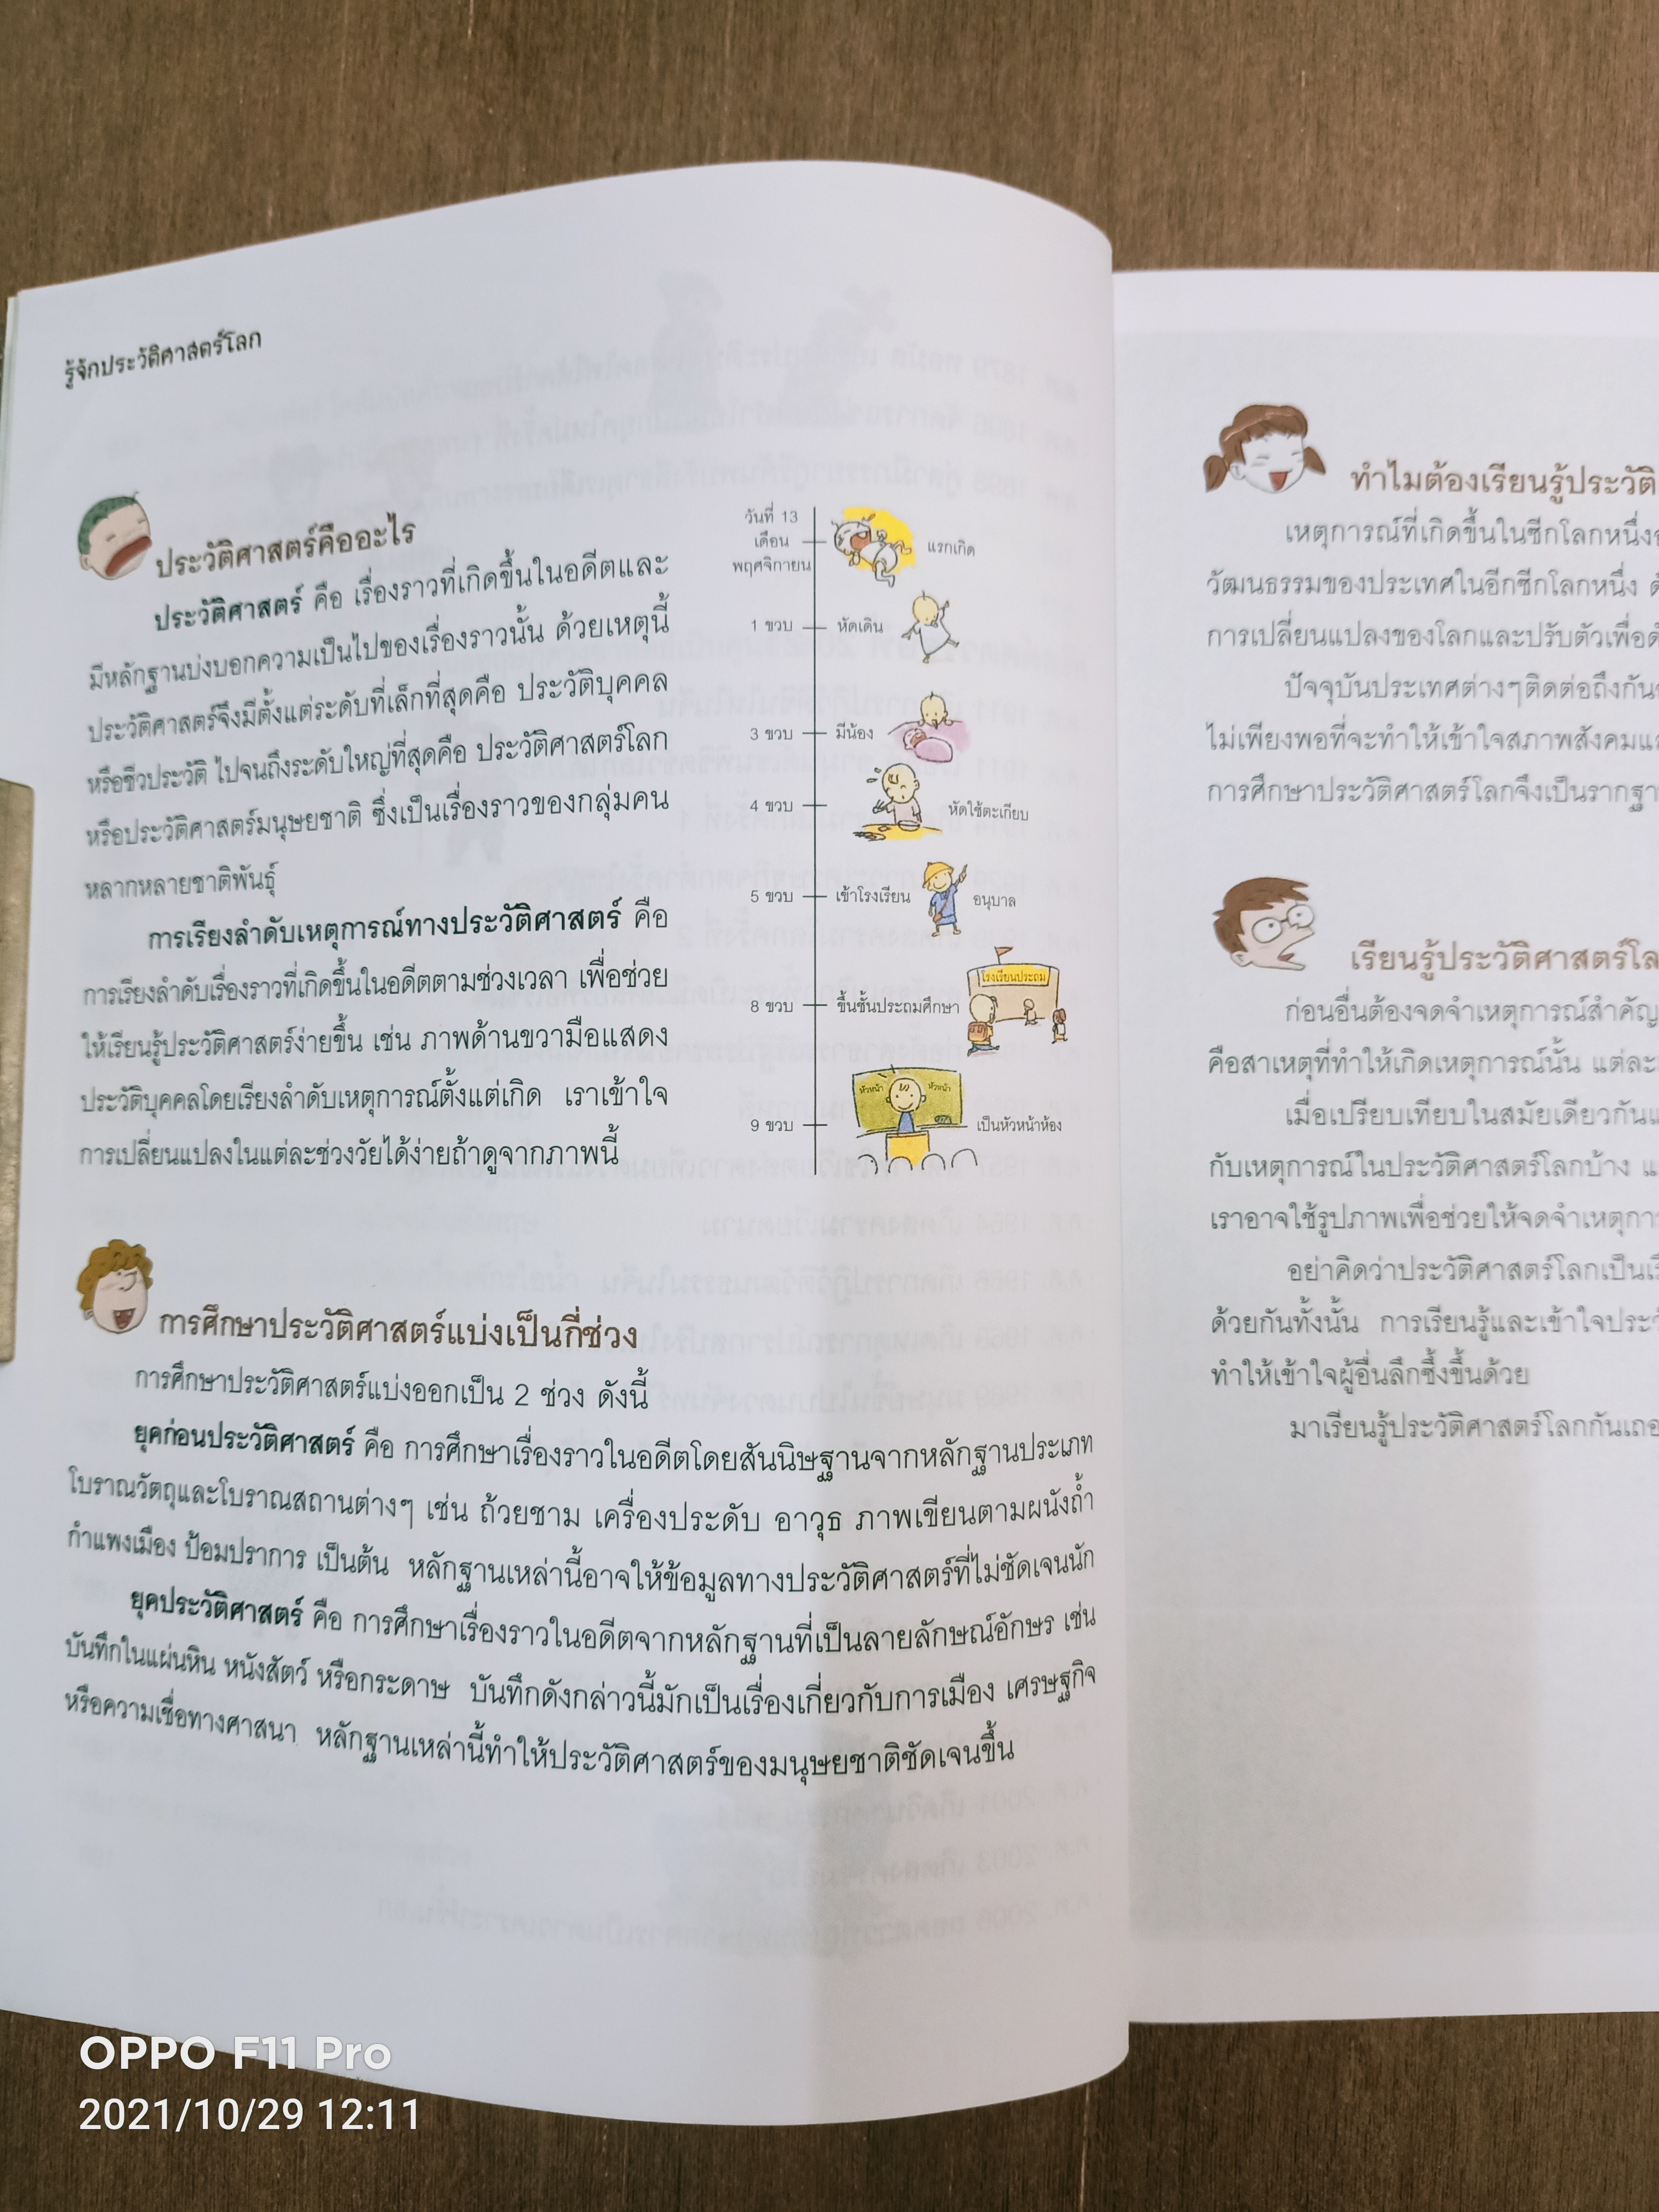 รู้จักประวัติศาสตร์โลก
ประวัติศาสตร์คืออะไร
ประวัติศาสตร์ คือ เรื่องราวที่เกิดขึ้นในอดีตและ
มีหลักฐานบ่งบอกความเป็นไปของเรื่องราวนั้น ด้วยเหตุนี้
ประวัติศาสตร์จึงมีตั้งแต่ระดับที่เล็กที่สุดคือ ประวัติบุคคล
หรือชีวประวัติ ไปจนถึงระดับใหญ่ที่สุดคือ ประวัติศาสตร์โลก
หรือประวัติศาสตร์มนุษยชาติ ซึ่งเป็นเรื่องราวของกลุ่มคน
หลากหลายชาติพันธุ์
การเรียงลำดับเหตุการณ์ทางประวัติศาสตร์ คือ
การเรียงลำดับเรื่องราวที่เกิดขึ้นในอดีตตามช่วงเวลา เพื่อช่วย
ให้เรียนรู้ประวัติศาสตร์ง่ายขึ้น เช่น ภาพด้านขวามือแสดง
ประวัติบุคคลโดยเรียงลำดับเหตุการณ์ตั้งแต่เกิด เราเข้าใจ
การเปลี่ยนแปลงในแต่ละช่วงวัยได้ง่ายถ้าดูจากภาพนี้
วันที่ 13
เดือน
พฤศจิกายน
แรกเกิด
1 ขวบ หัดเดิน
3 ขวบ มีน้อง
4 ขวบ หัดใช้ตะเกียบ
5 ขวบ เข้าโรงเรียน อนุบาล
โรงเรียนประถม
8 ขวบ ขึ้นชั้นประถมศึกษา
หัวหน้า หัวหน้า
9 ขวบ เป็นหัวหน้าห้อง
การศึกษาประวัติศาสตร์แบ่งเป็นกี่ช่วง
การศึกษาประวัติศาสตร์แบ่งออกเป็น 2 ช่วง ดังนี้
ยุคก่อนประวัติศาสตร์ คือ การศึกษาเรื่องราวในอดีตโดยสันนิษฐานจากหลักฐานประเภท
โบราณวัตถุและโบราณสถานต่างๆ เช่น ถ้วยชาม เครื่องประดับ อาวุธ ภาพเขียนตามผนังถ้ำ
กำแพงเมือง ป้อมปราการ เป็นต้น หลักฐานเหล่านี้อาจให้ข้อมูลทางประวัติศาสตร์ที่ไม่ชัดเจนนัก
ยุคประวัติศาสตร์ คือ การศึกษาเรื่องราวในอดีตจากหลักฐานที่เป็นลายลักษณ์อักษร เช่น
บันทึกในแผ่นหิน หนังสัตว์ หรือกระดาษ บันทึกดังกล่าวนี้มักเป็นเรื่องเกี่ยวกับการเมือง เศรษฐกิจ
หรือความเชื่อทางศาสนา หลักฐานเหล่านี้ทำให้ประวัติศาสตร์ของมนุษยชาติชัดเจนขึ้น
ทำไมต้องเรียนรู้ประวัติ
เหตุการณ์ที่เกิดขึ้นในซีกโลกหนึ่ง
วัฒนธรรมของประเทศในอีกซีกโลกหนึ่ง
การเปลี่ยนแปลงของโลกและปรับตัวเพื่อ
ปัจจุบันประเทศต่างๆติดต่อถึงกัน
ไม่เพียงพอที่จะทำให้เข้าใจสภาพสังคม
การศึกษาประวัติศาสตร์โลกจึงเป็นรากฐา
เรียนรู้ประวัติศาสตร์โล
ก่อนอื่นต้องจดจำเหตุการณ์สำคัญ
คือสาเหตุที่ทำให้เกิดเหตุการณ์นั้น แต่ละ
เมื่อเปรียบเทียบในสมัยเดียวกัน
กับเหตุการณ์ในประวัติศาสตร์โลกบ้าง
เราอาจใช้รูปภาพเพื่อช่วยให้จดจำเหตุกา
อย่าคิดว่าประวัติศาสตร์โลกเป็น
ด้วยกันทั้งนั้น การเรียนรู้และเข้าใจประ
ทำให้เข้าใจผู้อื่นลึกซึ้งขึ้นด้วย
มาเรียนรู้ประวัติศาสตร์โลกกันเถอ
OPPO F11 Pro
2021/10/29 12:11